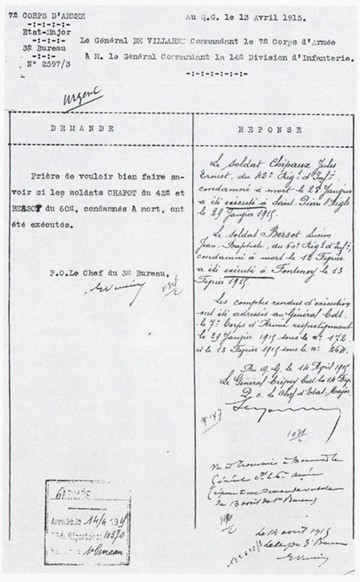 7e CORPS D'ARMEE
Etat-Major
3e Bureau
N° 2597/3
Au Q.G. le 13 Avril 1915.
Le Général DE VILLARET Commandant le 7e Corps d'Armée
à M. le Général Commandant la 14e Division d'Infanterie.
Urgent
DEMANDE
Prière de vouloir bien faire sa-
voir si les soldats CHAPOT du 42e et
BERSOT du 60e, condamnés à mort, ont
été exécutés.
P.O.Le Chef du 3e Bureau,
REPONSE
Le soldat Chipaux Jules
Ernest, du 42e Régt d'Inf.
condamné à mort le 28 Janvier
a été exécuté à Saint-Pierre d'Aigle
le 29 Janvier 1915.
Le soldat Bersot Lucien
Jean-Baptiste, du 60e Régt d'Inf.
condamné à mort le 12 Février
a été exécuté à Fontenoy le 13
Février 1915.
Les comptes rendus d'exécution
ont été adressés au Général Cdt.
le 7e Corps d'Armée respectivement
le 29 Janvier 1915 sous le n° 172
et le 13 Février 1915 sous le n° 264.
Au Q.G. le 14 Avril 1915
Le Général Crépey Cdt la 14e Dion
P.O. le Chef d'Etat Major
N° 147
Vu et transmis à Monsieur le
Général
Bureau
Le 14 avril 1915
Bureau
ARMÉE
Arrivée le 14/4 1915
10370
Bureau